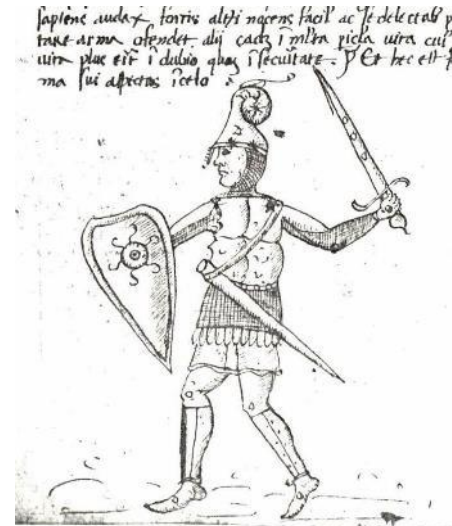 sapiens audax fortis alteri nocens facil ac se delectab p
tare arma ofendet alij cadz i mlta picla uita cui
uita plus erit i dubio quaz i secuitate. Et hec est
ma sui aspectus i celo